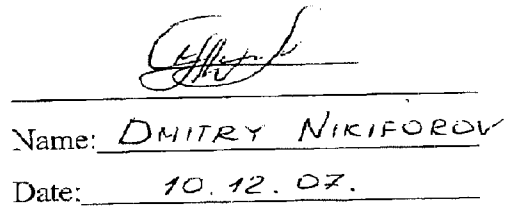 Name: DMITRY NIKIFOROV
Date: 10.12.07.